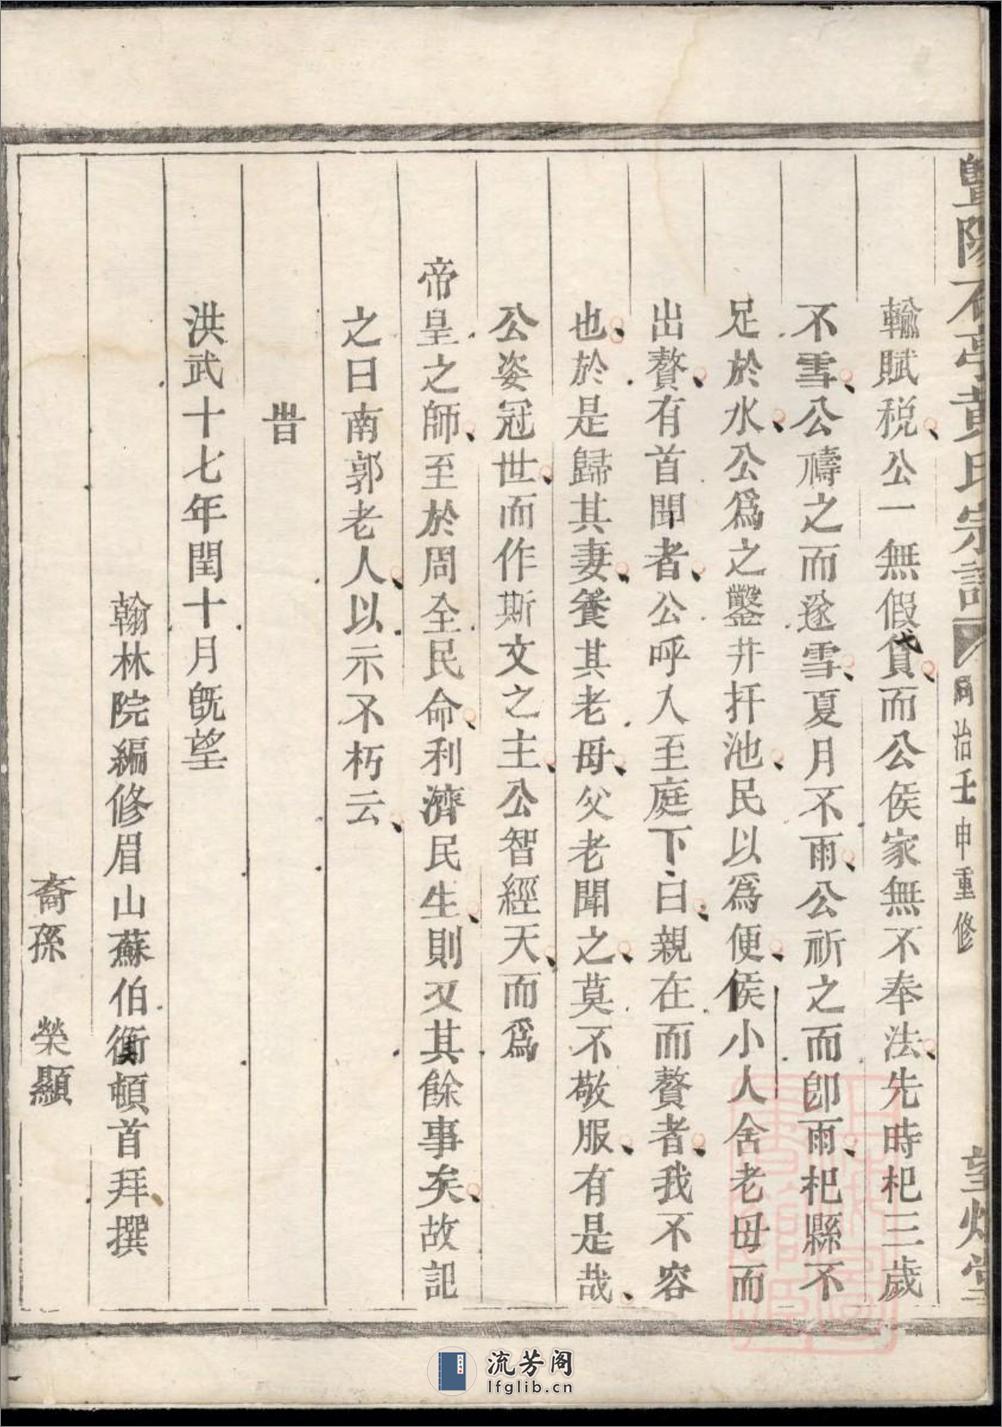 暨陽石亭黃氏宗譜 同治壬申重修 望煙堂
輸賦稅公一無假貸而公侯家無不奉法先時杞三歲
不雪公禱之而遂雪夏月不雨公祈之而卽雨杞縣不
足於水公爲之鑿井扞池民以爲便侯小人舍老母而
出贅有首聞者公呼入至庭下曰親在而贅者我不容
也於是歸其妻養其老母父老聞之莫不敬服有是哉
公姿冠世而作斯文之主公智經天而爲
帝皇之師至於周全民命利濟民生則又其餘事矣故記
之曰南郭老人以示不朽云
旹
洪武十七年閏十月旣望
翰林院編修眉山蘇伯衡頓首拜撰
裔孫 榮顯
流芳阁
lfglib.cn